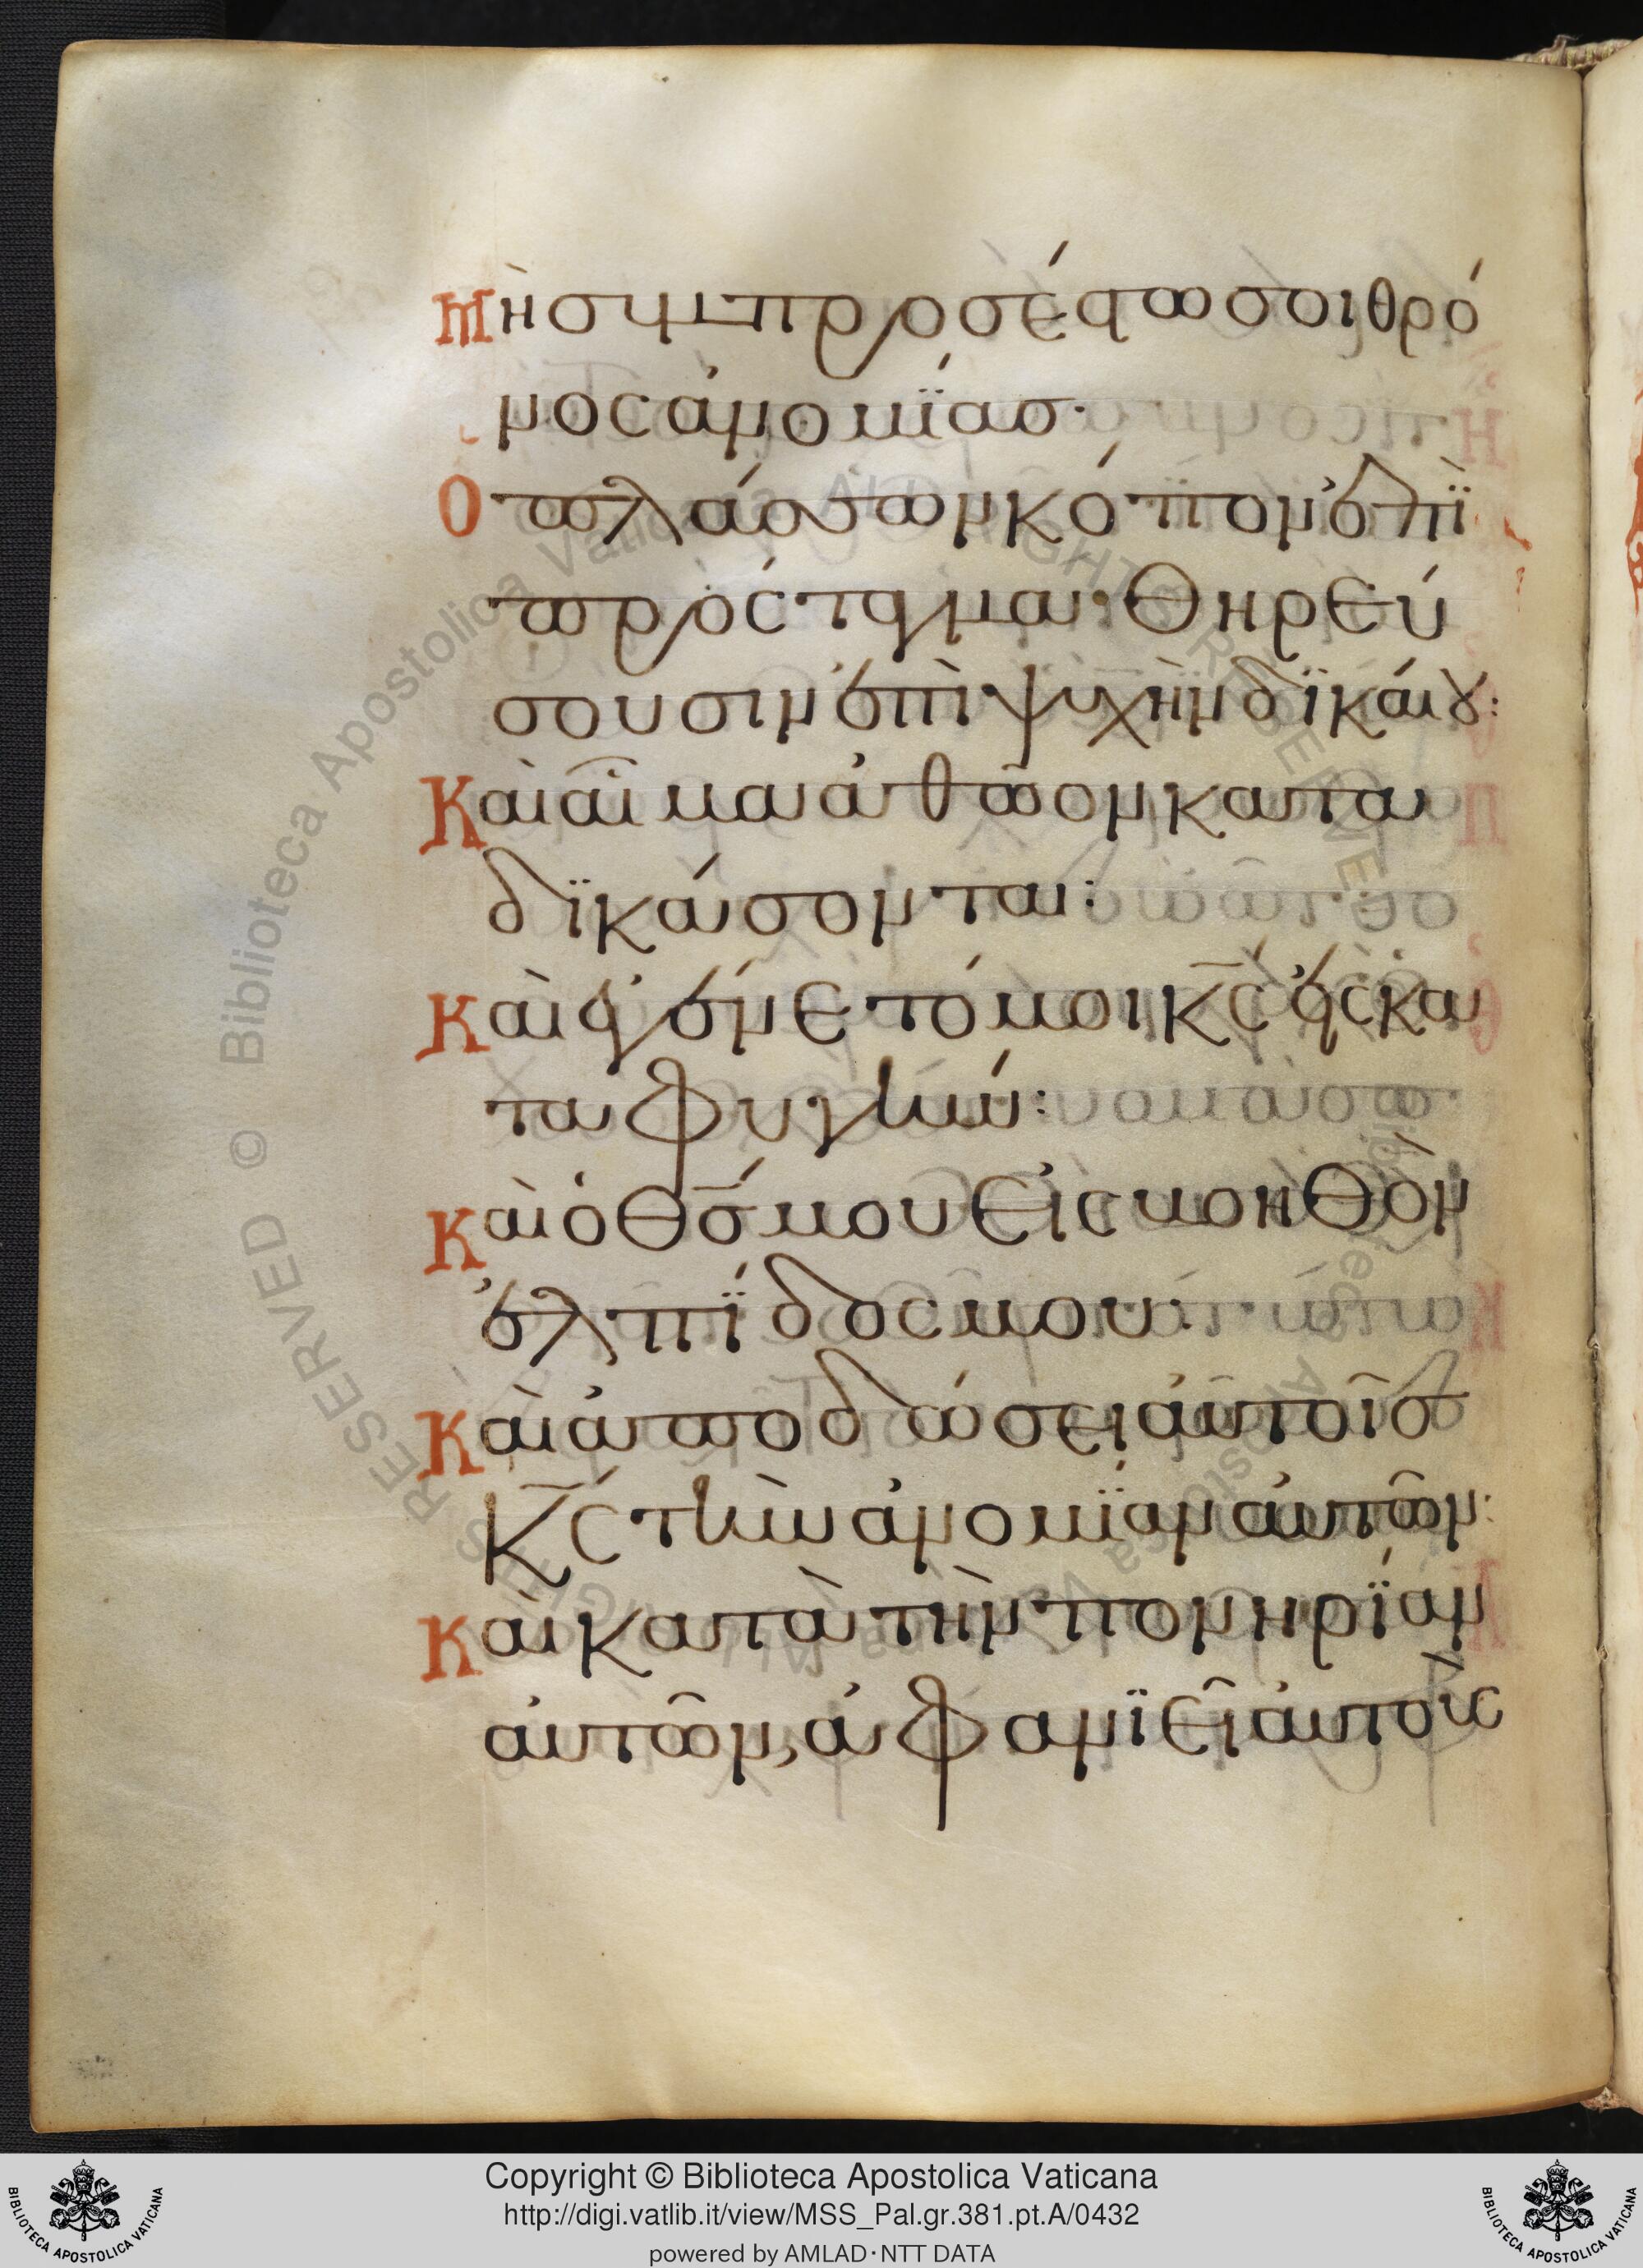 Μὴ συμπροσέστω σοι θρό
νος ἀνομίας·
Ὁ πλάσσων κόπον ἐπὶ
πρόσταγμα· Θηρεύ
σουσιν ἐπὶ ψυχὴν δϊκαίου:
Καὶ αἷμα ἀθῶον κατα
δϊκάσονται:
Καὶ ἐγένετό μοι Κς εἰς κα
ταφυγήν:
Καὶ ὁ Θς μου εἰς βοηθὸν
ἐλπίδος μου:
Καὶ ἀποδώσει αὐτοῖς
Κς τὴν ἀνομίαν αὐτῶν:
Καὶ κατὰ τὴν πονηρίαν
αὐτῶν, ἀφανϊεῖ αὐτοὺς
Copyright © Biblioteca Apostolica Vaticana
http://digi.vatlib.it/view/MSS_Pal.gr.381.pt.A/0432
powered by AMLAD · NTT DATA
BIBLIOTECA APOSTOLICA VATICANA
BIBLIOTECA APOSTOLICA VATICANA